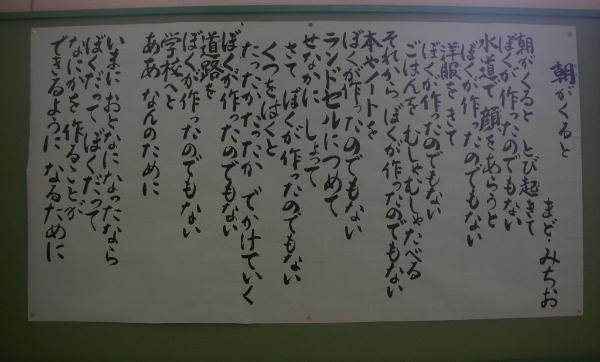 朝がくると
まど・みちお
朝がくると とび起きて
ぼくが作ったのでもない
水道で 顔をあらうと
ぼくが作ったのでもない
洋服をきて
ぼくが作ったのでもない
ごはんを むしゃむしゃたべる
それから ぼくが作ったのでもない
本やノートを
ぼくが作ったのでもない
ランドセルにつめて
せなかに しょって
さて ぼくが作ったのでもない
くつをはくと
たったか たったか でかけていく
ぼくが作ったのでもない
道路を
ぼくが作ったのでもない
学校へと
ああ なんのために
いまに おとなになったなら
ぼくだって ぼくだって
なにかを作ることが
できるように なるために